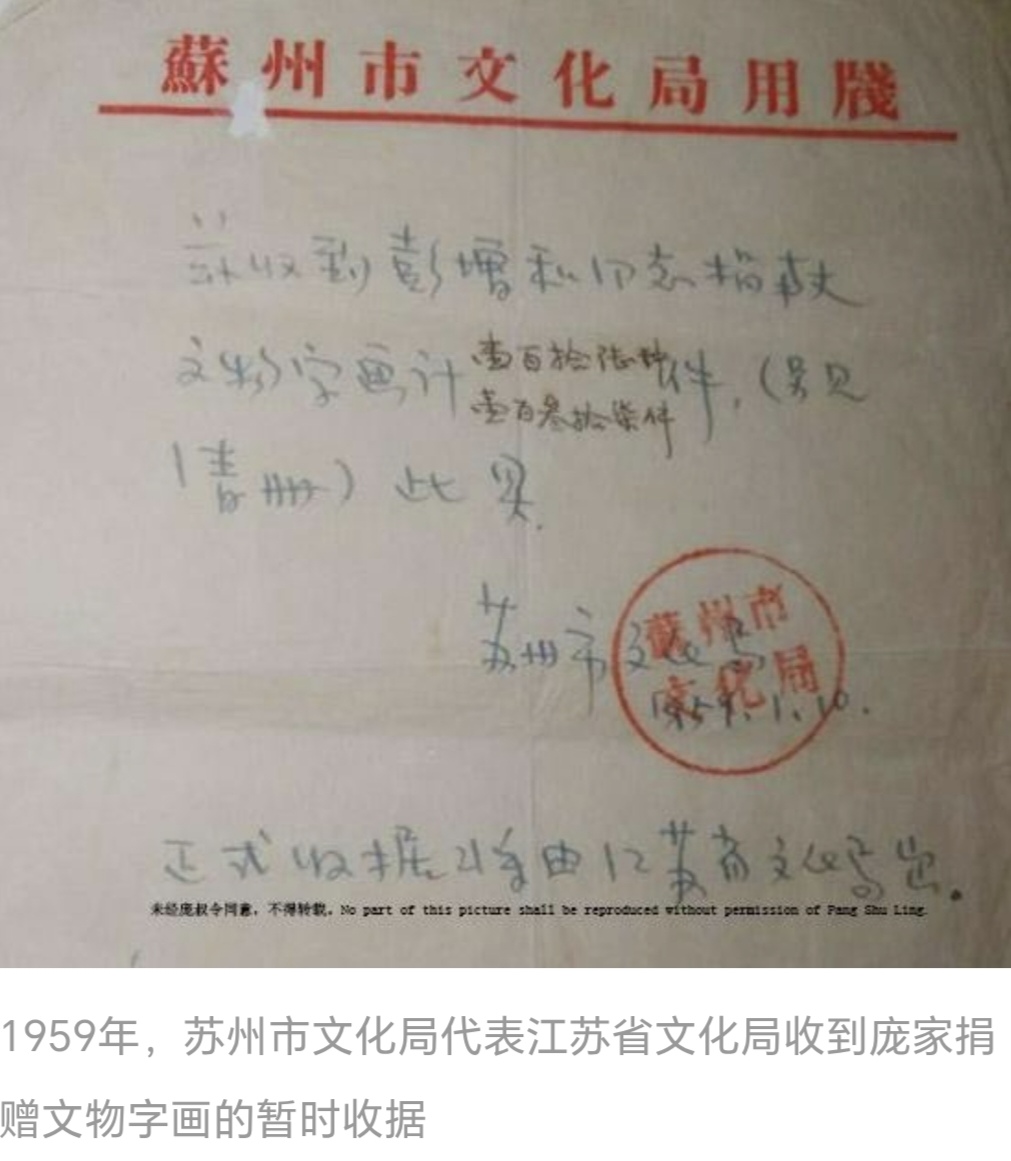 蘇州市文化局用牋
兹收到彭增和同志捐献
文物字画计 壹百拾 种 件，（另见
壹百叁拾柒件
清册）此具.
苏州市文化局
蘇州市
文化局
1959.1.10.
正式收据将由江苏省文化局出。
未经庞叔令同意，不得转载。No part of this picture shall be reproduced without permission of Pang Shu Ling.
1959年，苏州市文化局代表江苏省文化局收到庞家捐
赠文物字画的暂时收据